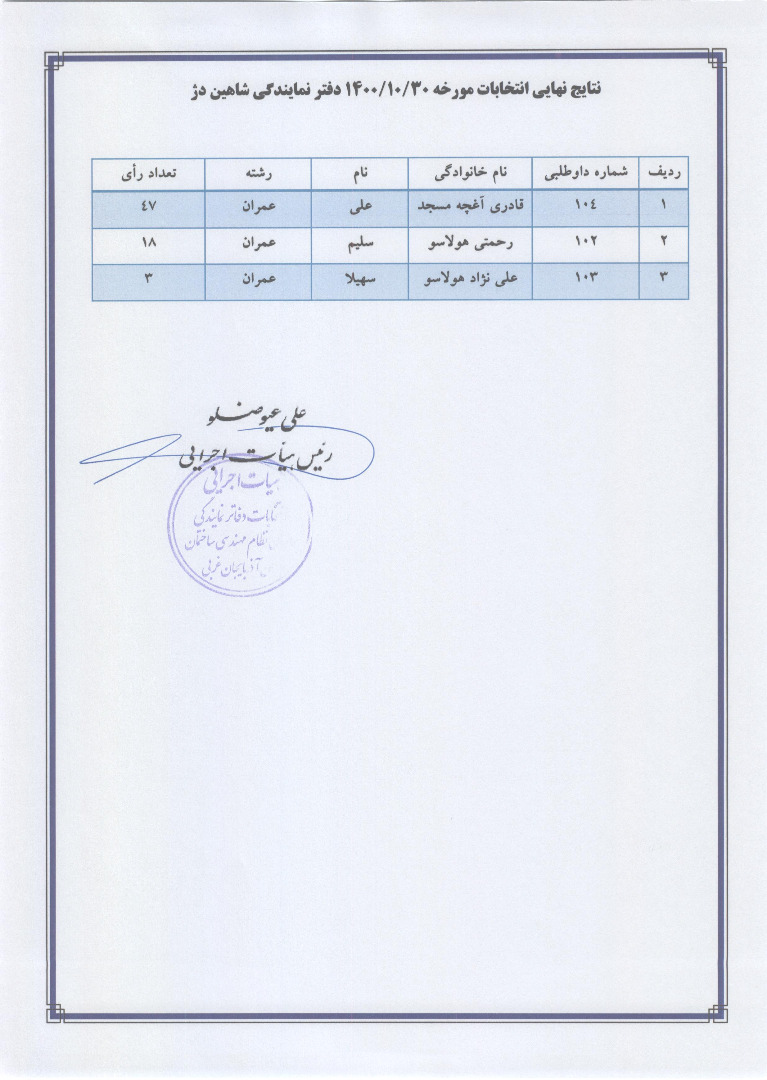 نتایج نهایی انتخابات مورخه ۱۴۰۰/۱۰/۳۰ دفتر نمایندگی شاهین دژ
ردیف شماره داوطلبی نام خانوادگی نام رشته تعداد رأی
۱ ۱۰٤ قادری آغچه مسجد علی عمران ٤۷
۲ ۱۰۲ رحمتی هولاسو سلیم عمران ۱۸
۳ ۱۰۳ علی نژاد هولاسو سهیلا عمران ۳
علی عیوضلو
رئیس هیأت اجرایی
یأت اجرایی
بات دفاتر نمایندگی
نظام مهندسی ساختمان
آذربایجان غربی